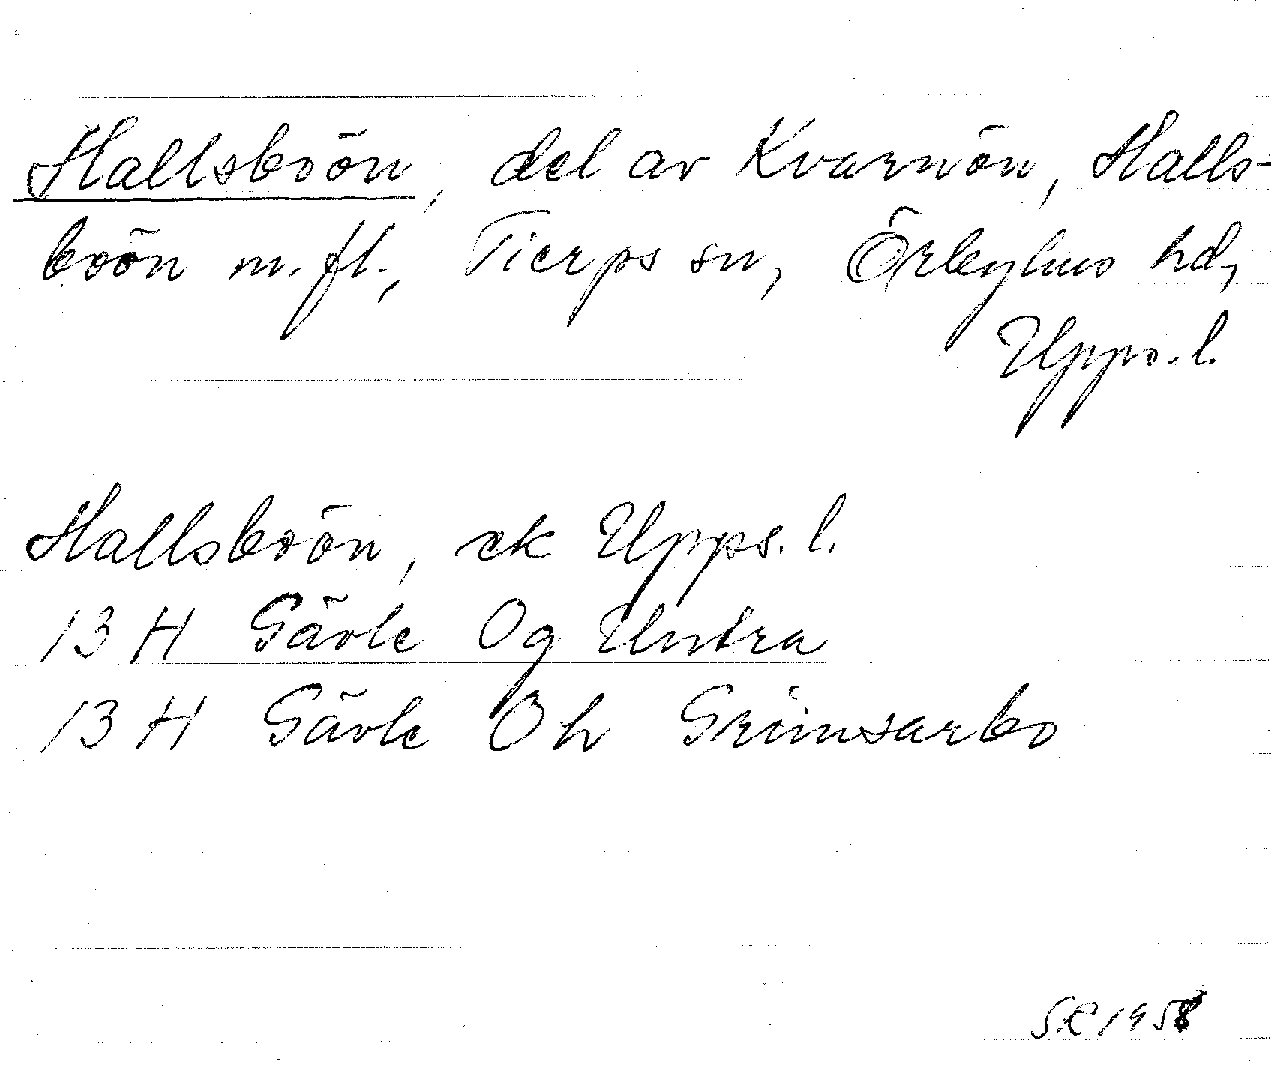 Hallsboön, del av Kvarnön, Halls-
boön m. fl., Tierps sn, Örbyhus hd,
Upps. l.
Hallsboön, ek Upps. l.
13 H Gävle Og Untra
13 H Gävle Oh Grimsarbo
SR 1958